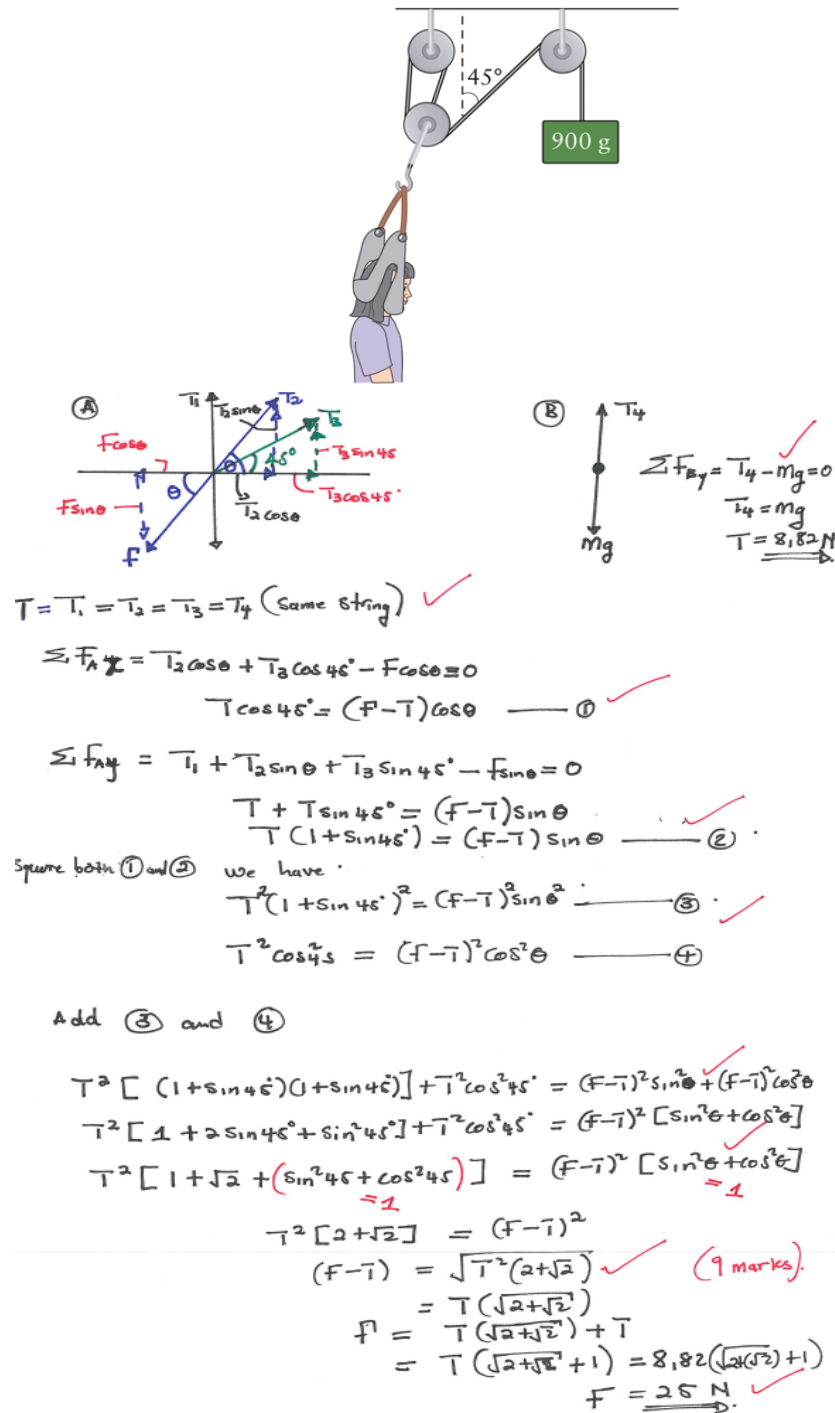 45°
900 g
Ⓐ
T₁
T₂sinθ
T₂
T₃
Fcosθ
θ
θ
45°
T₃sin45
T₃cos45°
T₂cosθ
Fsinθ
F
Ⓑ
T₄
mg
ΣF_By = T₄ - mg = 0
T₄ = mg
T = 8,82 N
T = T₁ = T₂ = T₃ = T₄ (Same string)
ΣF_Ax = T₂cosθ + T₃cos45° - Fcosθ = 0
Tcos45° = (F-T)cosθ —— ①
ΣF_Ay = T₁ + T₂sinθ + T₃sin45° - Fsinθ = 0
T + Tsin45° = (F-T)sinθ
T(1+sin45°) = (F-T)sinθ —— ② .
Square both ① and ② we have .
T²(1+sin45°)² = (F-T)²sinθ² —— ③ .
T²cos²45 = (F-T)²cos²θ —— ④
Add ③ and ④
T²[(1+sin45°)(1+sin45°)] + T²cos²45° = (F-T)²sin²θ + (F-T)²cos²θ
T²[1 + 2sin45° + sin²45°] + T²cos²45° = (F-T)²[sin²θ + cos²θ]
T²[1 + √2 + (sin²45 + cos²45)] = (F-T)²[sin²θ + cos²θ]
=1 =1
T²[2+√2] = (F-T)²
(F-T) = √T²(2+√2) (9 marks).
= T(√2+√2)
F = T(√2+√2) + T
= T(√2+√2 + 1) = 8,82(√2+(√2) + 1)
F = 25 N